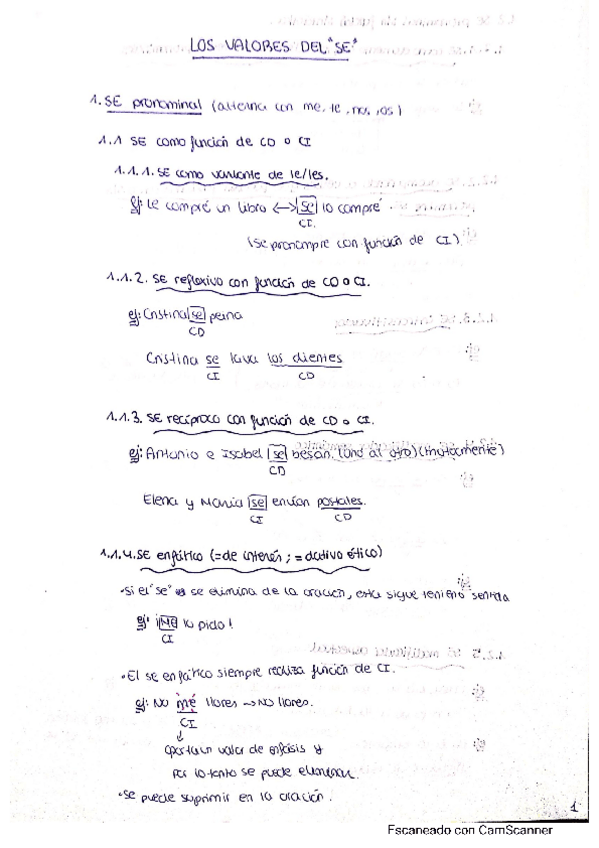 LOS VALORES DEL "SE"
1. SE pronominal (alterna con me, te, nos, os)
1.1 SE como función de CD o CI
1.1.1. SE como variante de le/les.
Ej: Le compré un libro <-> se lo compré
CI.
(se pronompre con función de CI)
1.1.2. SE reflexivo con función de CD o CI.
ej: Cristina se peina
CD
Cristina se lava los dientes
CI CD
1.1.3. SE recíproco con función de CD o CI.
ej: Antonio e Isabel se besan. (uno al otro) (mutuamente)
CD
Elena y María se envían postales.
CI CD
1.1.4. SE enfático (= de interés ; = dativo ético)
• Si el "se" se elimina de la oración, esta sigue teniendo sentido
ej: ¡Me lo pido!
CI
• El se enfático siempre realiza función de CI.
ej: No me llores -> No llores.
CI
↓
aporta un valor de énfasis y
por lo tanto se puede eliminar.
• Se puede suprimir en la oración.
1
Escaneado con CamScanner